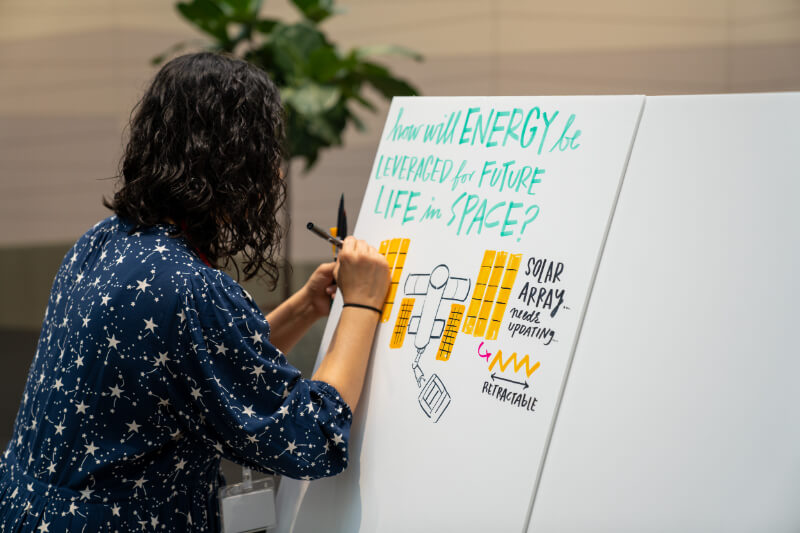 how will ENERGY be
LEVERAGED for FUTURE
LIFE in SPACE?
SOLAR
ARRAY...
needs
UPDATING...
RETRACTABLE